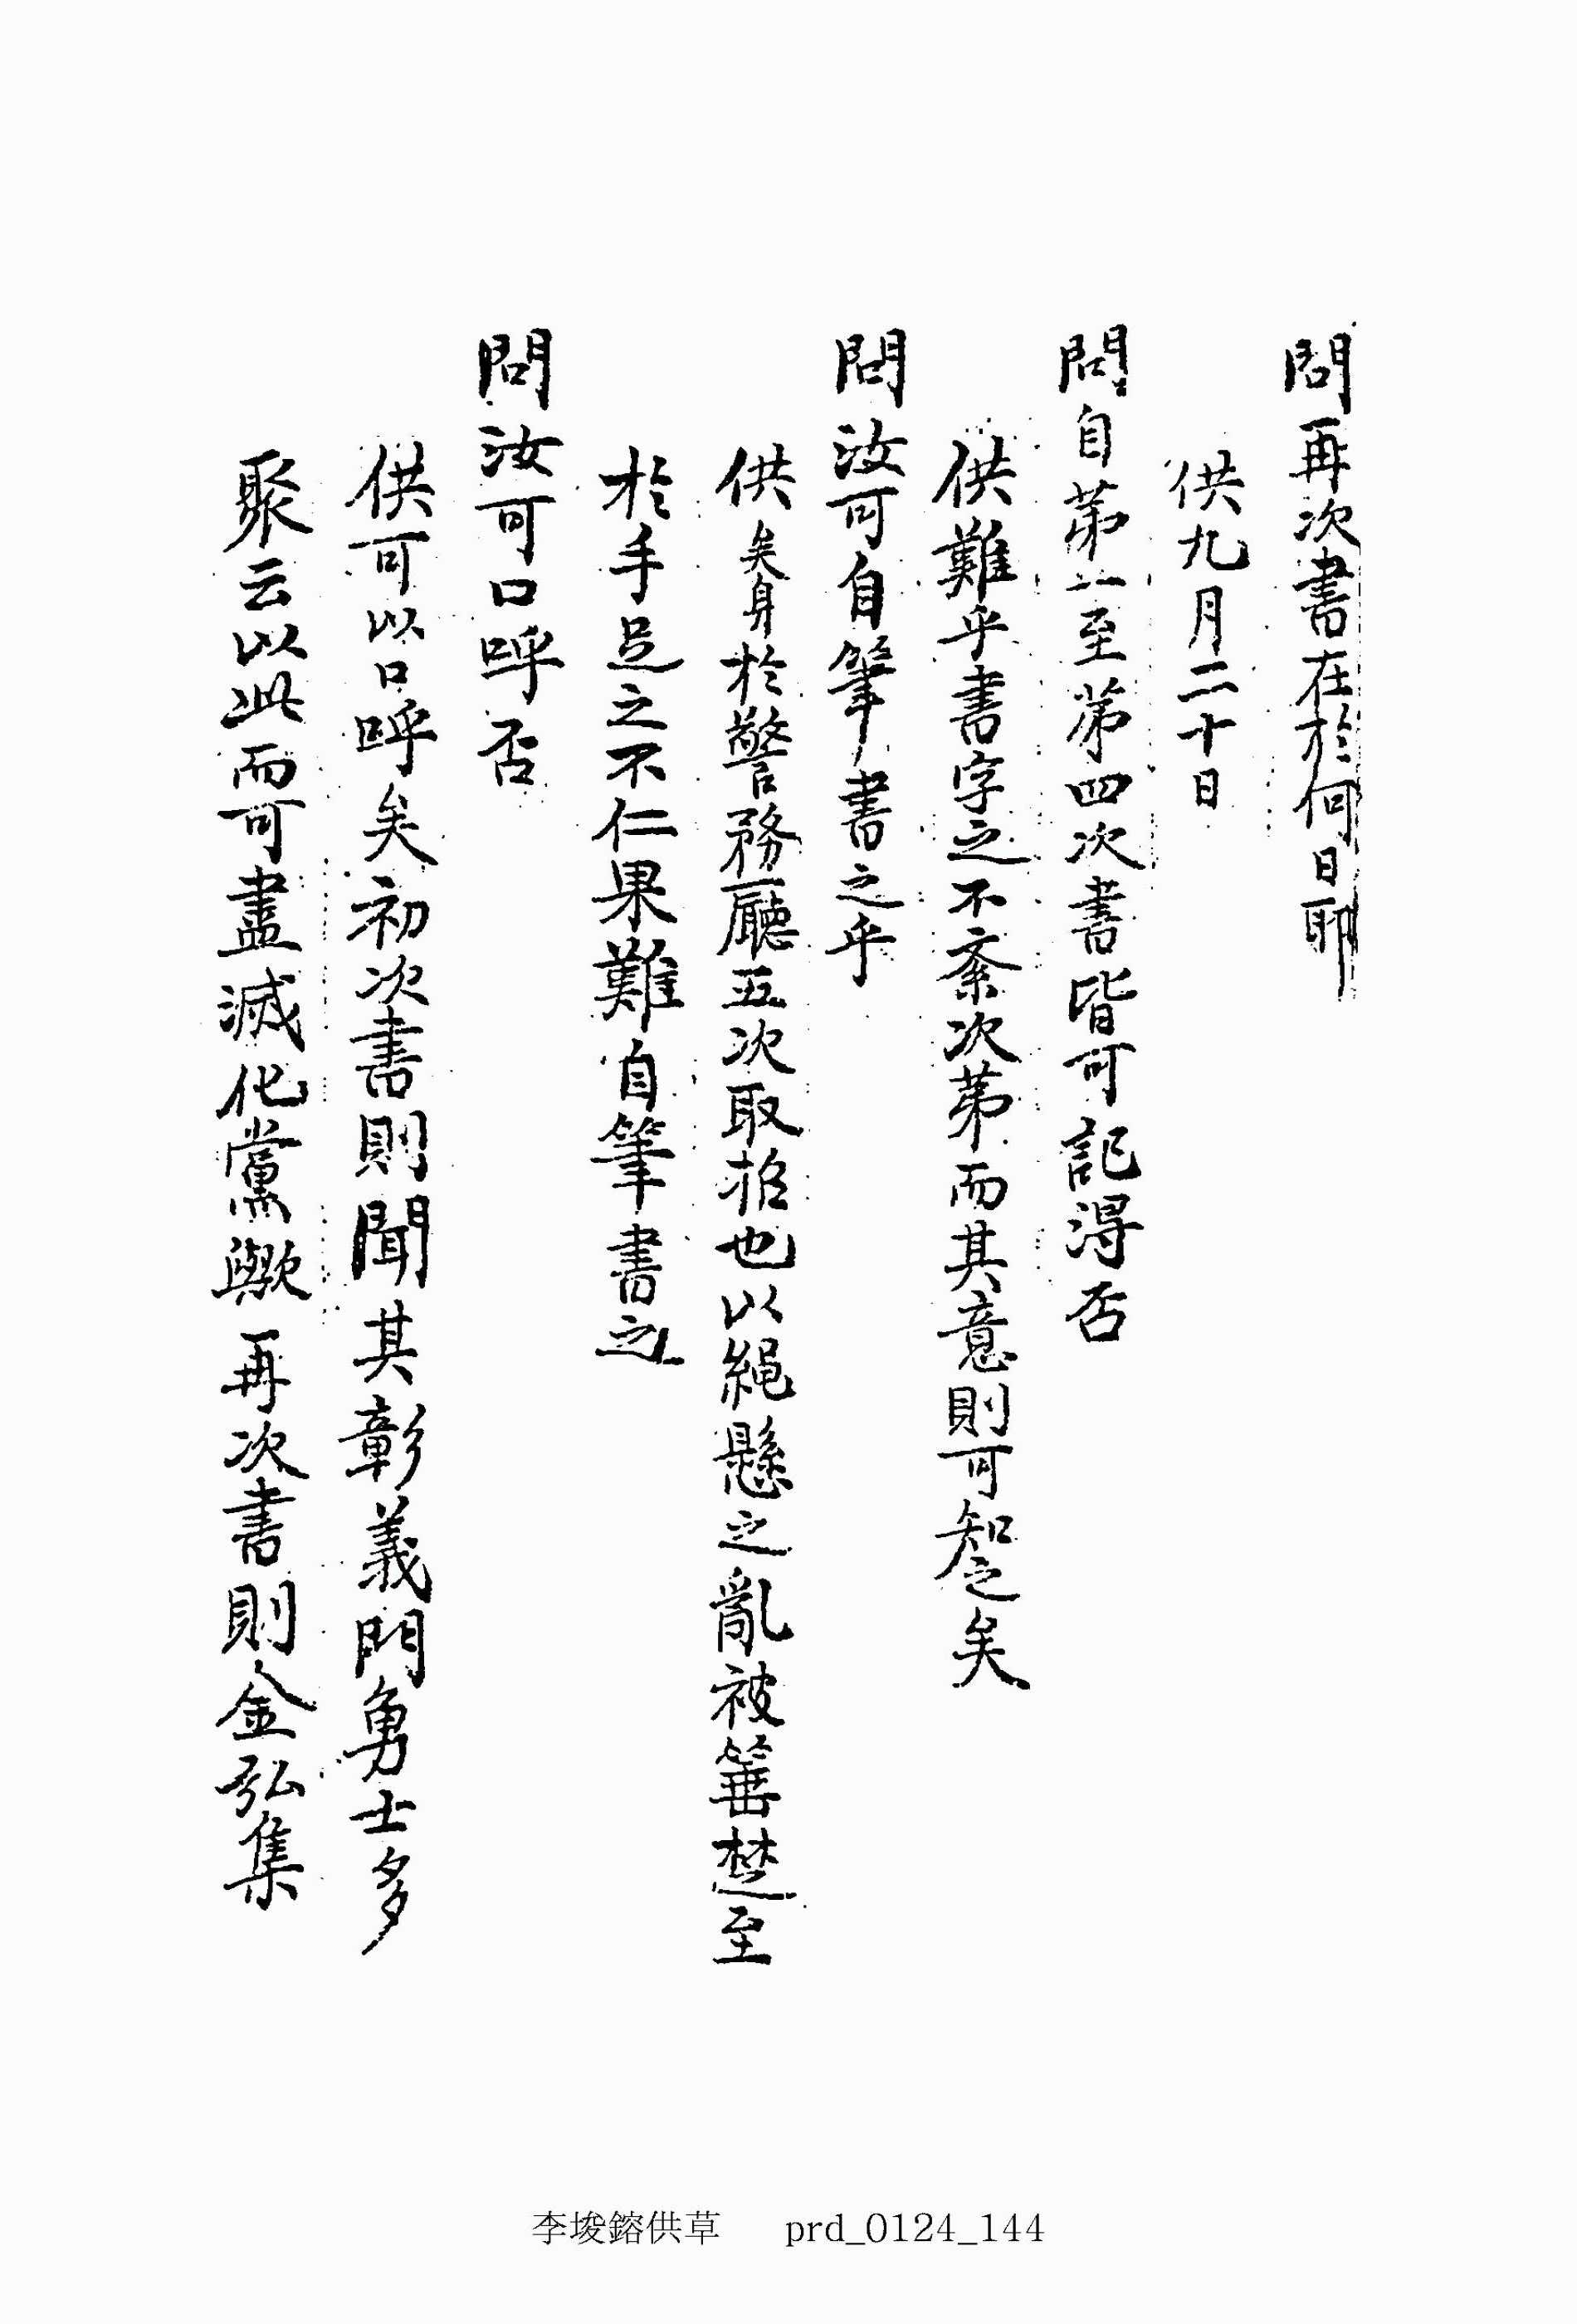 問再次書在於何日耶
供九月二十日
問自苐一至苐四次書皆可記得否
供難乎書字之不紊次苐而其意則可知之矣
問汝可自筆書之乎
供矣身於警務廳五次取招也以繩懸之亂被箠楚至
於手足之不仁果難自筆書之
問汝可口呼否
供可以口呼矣初次書則聞其彰義門勇士多
聚云以此而可盡滅化黨歟再次書則金弘集
李埈鎔供草 prd_0124_144